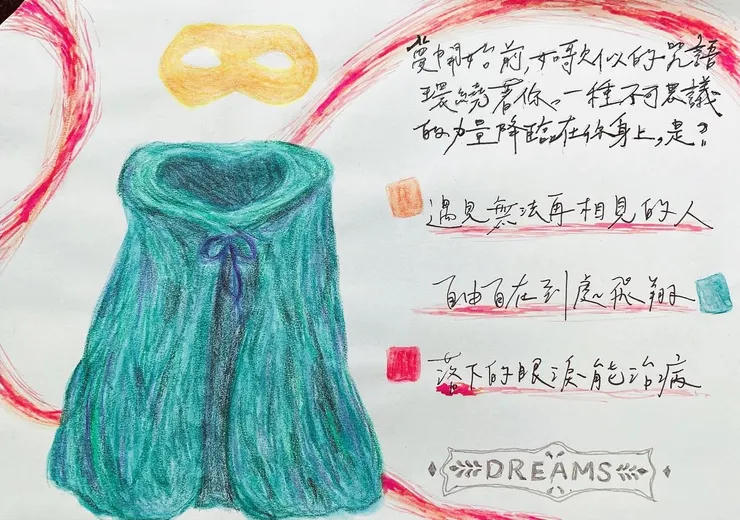 夢開始前,如歌似的咒語
環繞著你。一種不可思議
的力量降臨在你身上,是?
遇見無法再相見的人
自由自在到處飛翔
落下的眼淚能治病
DREAMS